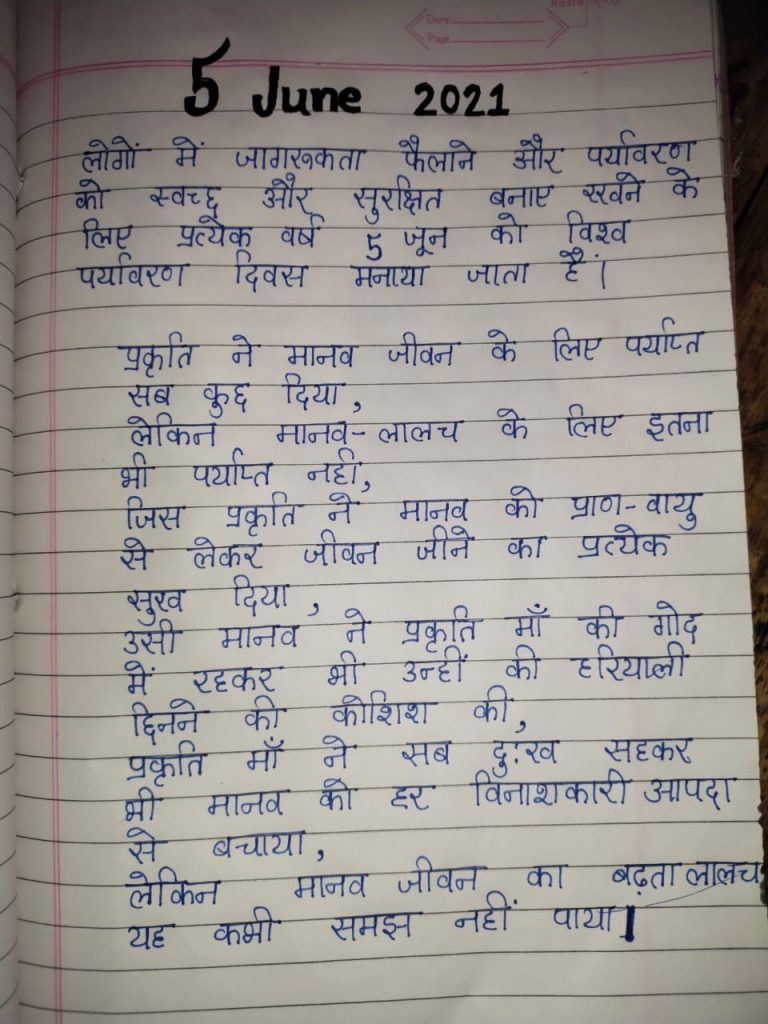 Date
Page
5 June 2021
लोगों में जागरूकता फैलाने और पर्यावरण
को स्वच्छ और सुरक्षित बनाए रखने के
लिए प्रत्येक वर्ष 5 जून को विश्व
पर्यावरण दिवस मनाया जाता है।
प्रकृति ने मानव जीवन के लिए पर्याप्त
सब कुछ दिया,
लेकिन मानव-लालच के लिए इतना
भी पर्याप्त नहीं,
जिस प्रकृति ने मानव को प्राण-वायु
से लेकर जीवन जीने का प्रत्येक
सुख दिया,
उसी मानव ने प्रकृति माँ की गोद
में रहकर भी उन्हीं की हरियाली
छिनने की कोशिश की,
प्रकृति माँ ने सब दुःख सहकर
भी मानव को हर विनाशकारी आपदा
से बचाया,
लेकिन मानव जीवन का बढ़ता लालच
यह कभी समझ नहीं पाया।